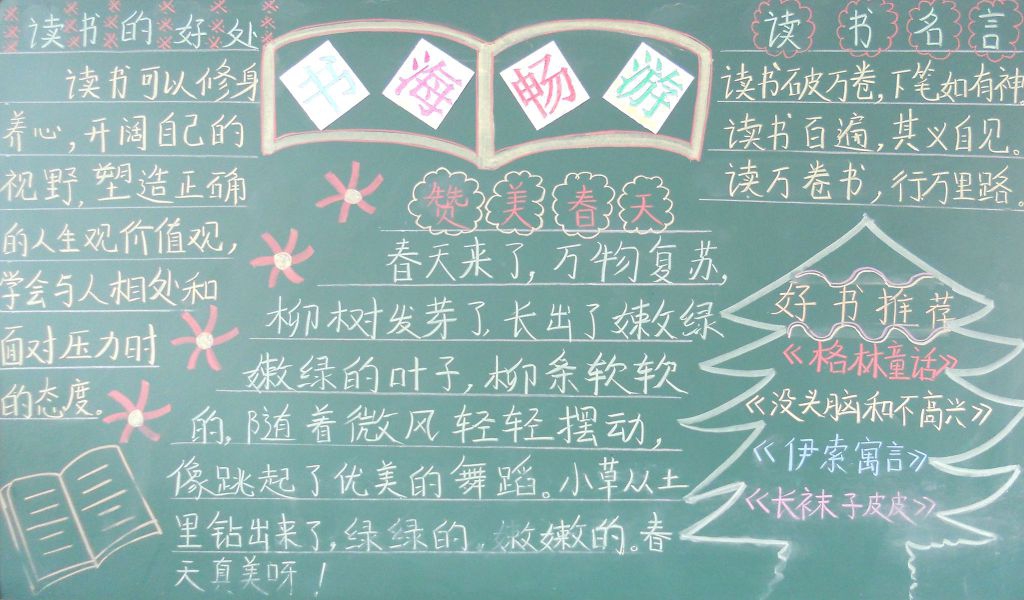 读书的好处
读书可以修身
养心,开阔自己的
视野,塑造正确
的人生观价值观,
学会与人相处和
面对压力时
的态度。
书海畅游
赞美春天
春天来了,万物复苏,
柳树发芽了,长出了嫩绿
嫩绿的叶子,柳条软软
的,随着微风轻轻摆动,
像跳起了优美的舞蹈。小草从土
里钻出来了,绿绿的,嫩嫩的。春
天真美呀!
读书名言
读书破万卷,下笔如有神
读书百遍,其义自见。
读万卷书,行万里路。
好书推荐
《格林童话》
《没头脑和不高兴》
《伊索寓言》
《长袜子皮皮》